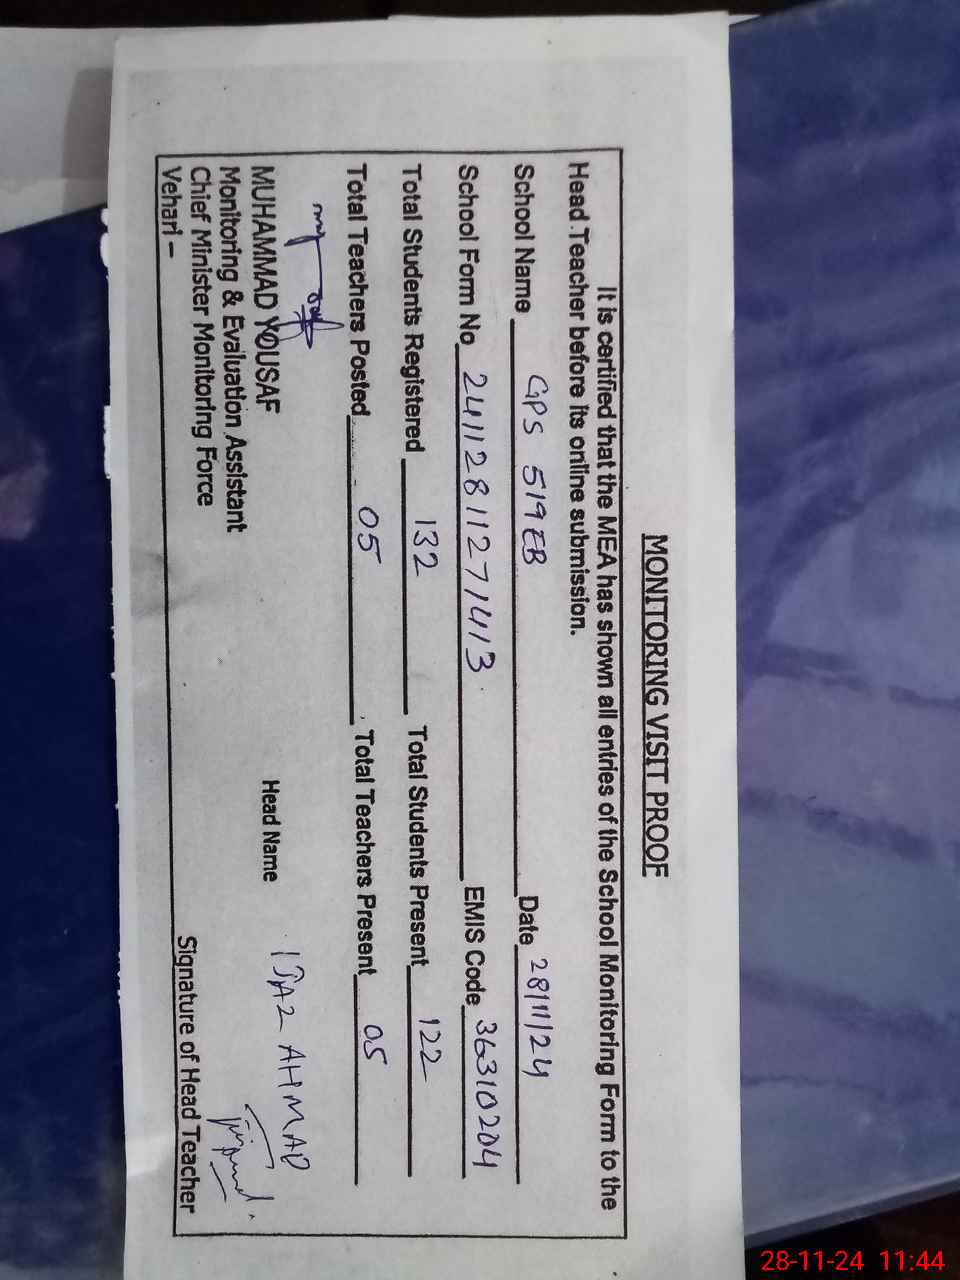 MONITORING VISIT PROOF
It is certified that the MEA has shown all entries of the School Monitoring Form to the
Head Teacher before its online submission.
School Name GPS 519EB Date 28/11/24
School Form No 24112811271413 EMIS Code 36310204
Total Students Registered 132 Total Students Present 122
Total Teachers Posted 05 Total Teachers Present 05
MUHAMMAD YOUSAF Head Name IJAZ AHMAD
Monitoring & Evaluation Assistant
Chief Minister Monitoring Force
Vehari - Signature of Head Teacher
28-11-24 11:44